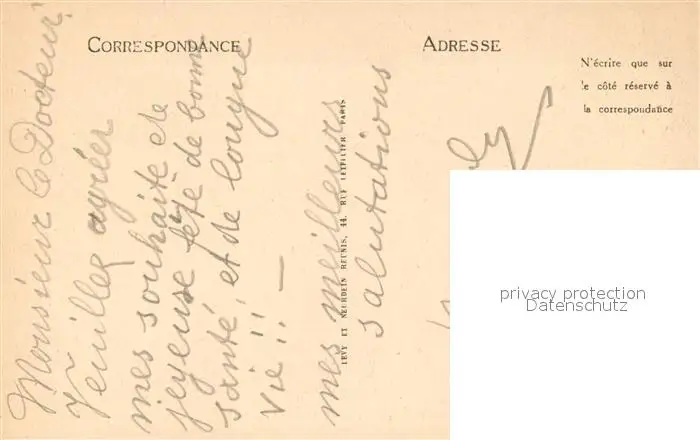 CORRESPONDANCE
ADRESSE
N'écrire que sur
le côté réservé à
la correspondance
Monsieur le Docteur
Veuillez agréer
mes souhaits de
joyeuse fête de bonne
santé, et de longue
vie!! —
mes meilleurs
salutations
LEVY ET NEURDEIN REUNIS, 44, RUE LETELLIER PARIS
privacy protection
Datenschutz